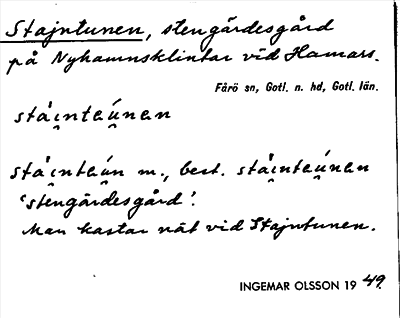 Stajntunen, stengärdesgård
på Nyhamnsklintar vid Hamars.
Fårö sn, Gotl. n. hd, Gotl. län.
stái̯nteu̯nen
stái̯nteu̯n m., best. stái̯nteu̯nen
'stengärdesgård'.
Man kastar nät vid Stajntunen.
INGEMAR OLSSON 1949